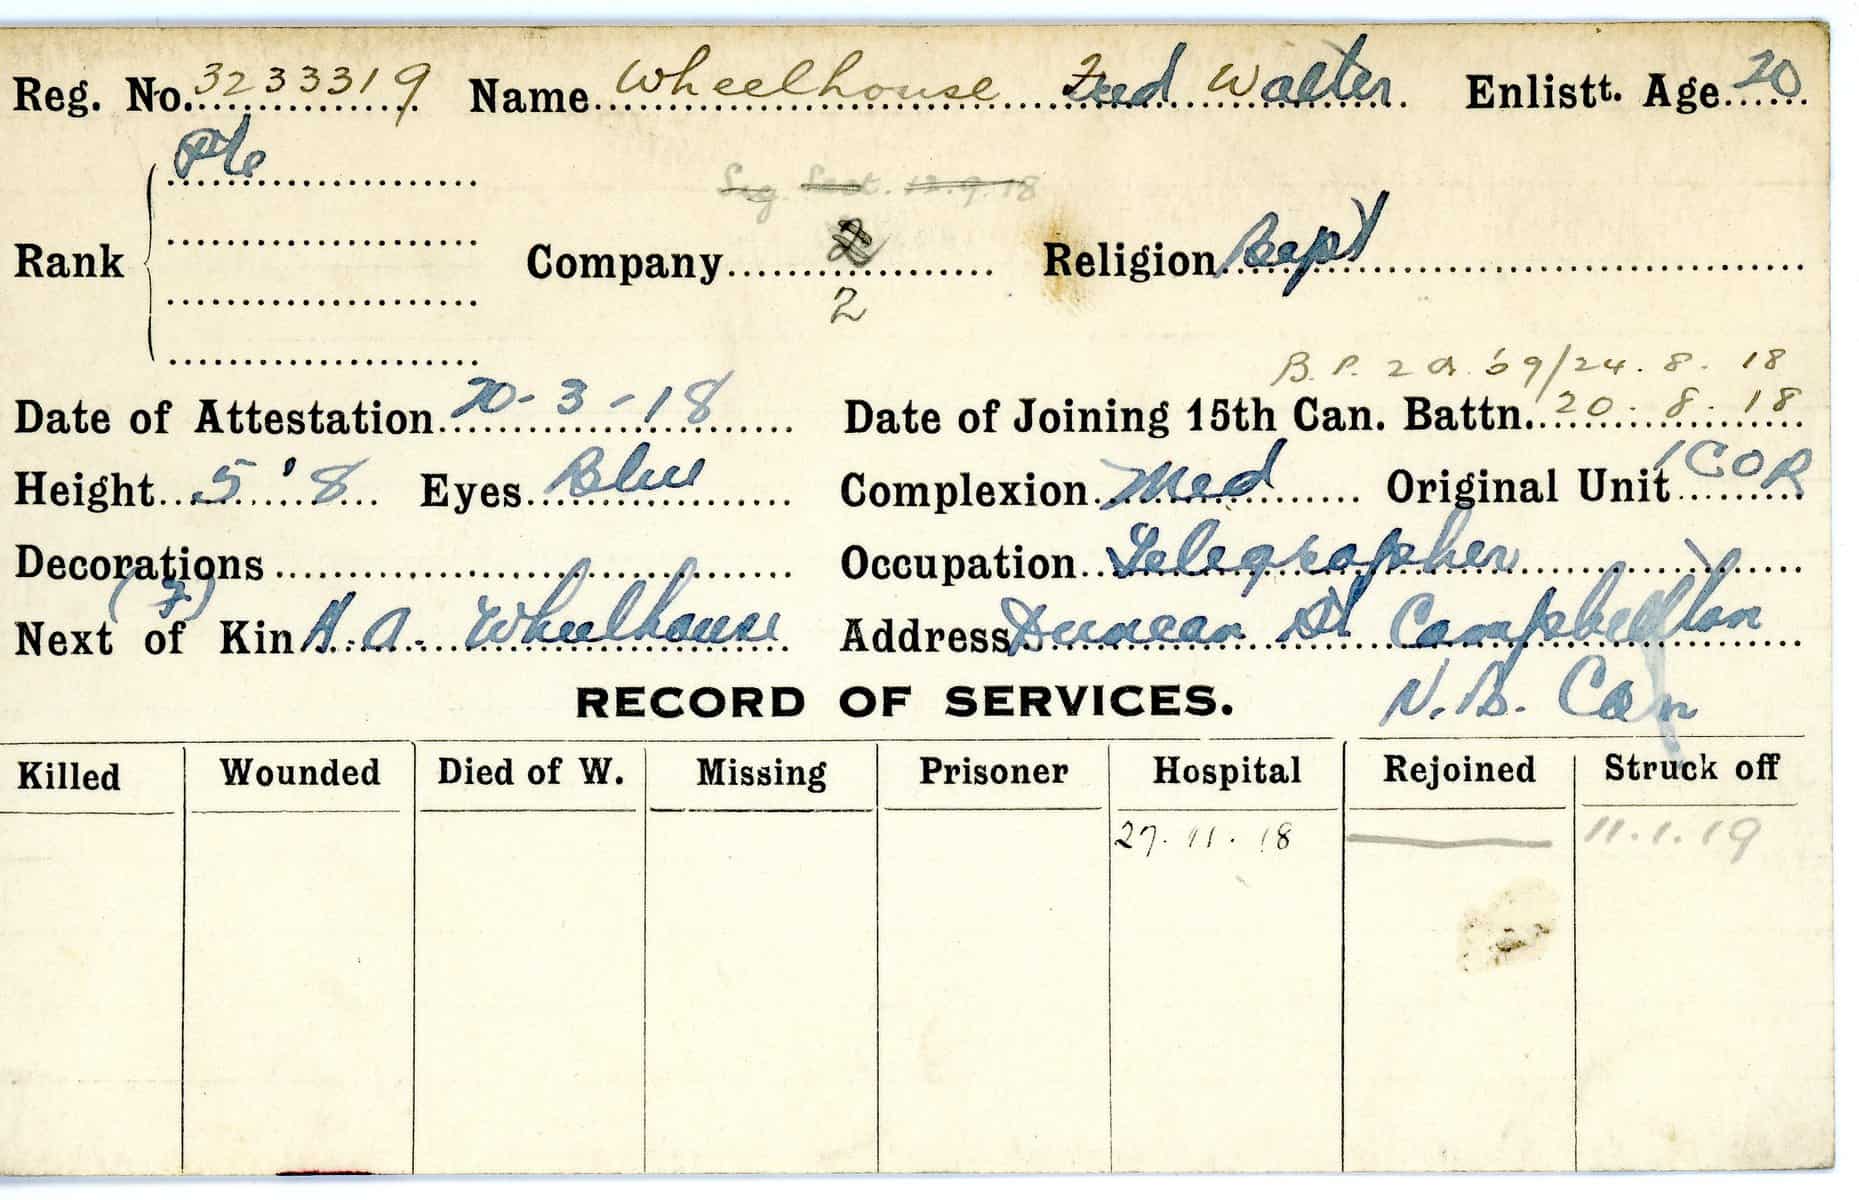 Reg. No. 3233319 Name Wheelhouse Fred Walter Enlistt. Age 20
Pte
Sig. Sect. 12.9.18
Rank Company 2 Religion Bapt
2
B. P. 2 a 59/24. 8. 18
Date of Attestation 20-3-18 Date of Joining 15th Can. Battn. 20. 8. 18
Height 5'8 Eyes Blue Complexion Med Original Unit 1COR
Decorations Occupation Telegrapher
(F)
Next of Kin H. A. Wheelhouse Address Duncan St Campbellton
N. B. Can
RECORD OF SERVICES.
Killed Wounded Died of W. Missing Prisoner Hospital Rejoined Struck off
27. 11. 18 11.1.19